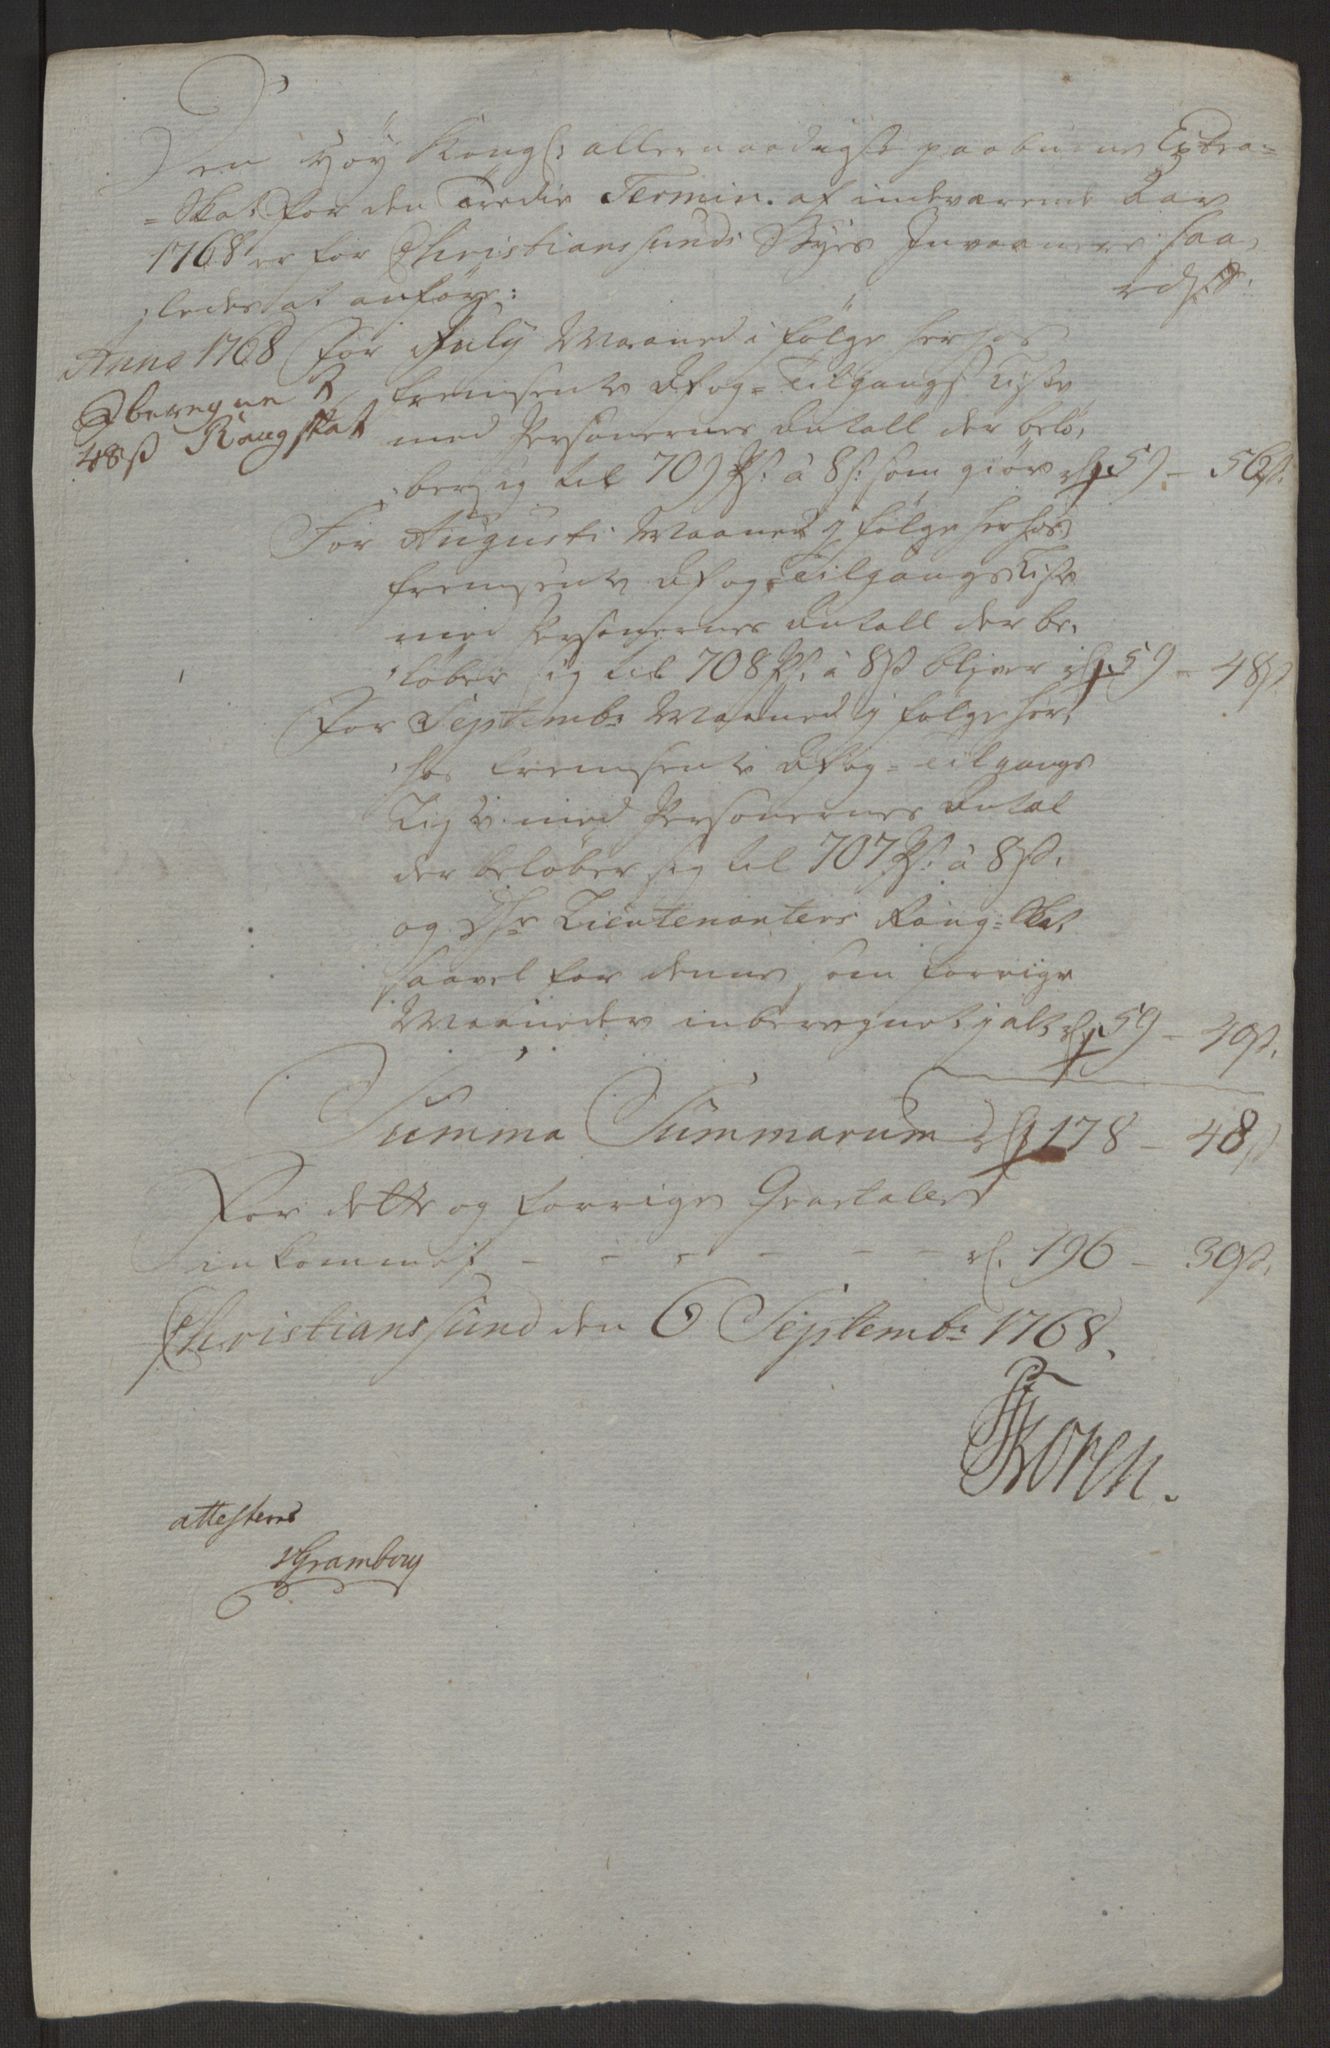 Den Höy Kongl: allernaadigste paabudne Extra=
=Skat for den Tredie Termin. af indeværende Aar
1768 er for Christianssunds Byes Invaanere saa,
,ledes at anföre:
rd ß:
Anno 1768
Iberegnet 3
48 ß Rangskat
For July Maaned i fölge herhos
fremsente Af og= Tilgangs Liste
med Personernes Antall der belö,
,ber sig til 709 Ps: à 8 ß: som giör rd 59 - 56 ß:
For Augusti Maaned j fölge herhos
fremsente Af og Tilgangs Liste
med Personernes Antall der be,
,löber sig til 708 Ps: à 8 ß bliver rd 59 - 48 ß
For Septemb: Maaned j fölge her,
,hos fremsente Af og= Tilgangs
Liste med Personernes Antal
der belöber sig til 707 Ps: à 8 ß.
og Hr Lieutenanters Rang=Skat
saavel for denne som forrige
Maaneder inberegnet jalt rd 59 - 40 ß.
Summa Summarum rd 178 - 48 ß
For dette og forrige Qvartaler
inkommet - - - - - - rd. 196 - 30 ß.
Christianssund den 6 Septemb: 1768.
Koren.
attesteres
Gramborg